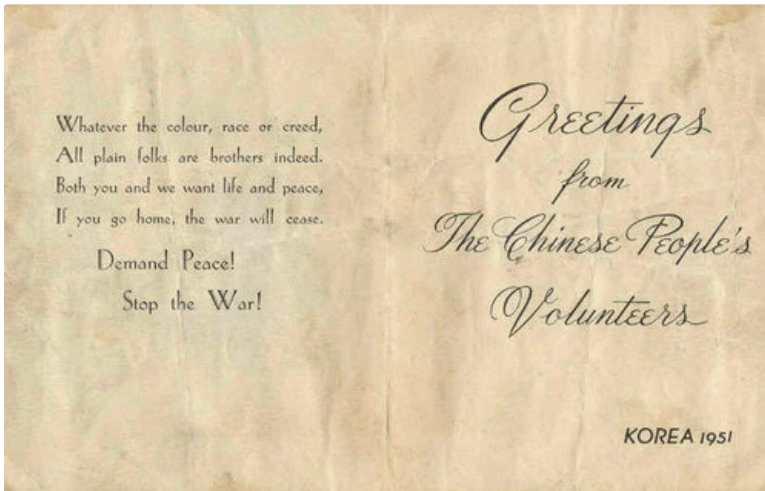 Whatever the colour, race or creed,
All plain folks are brothers indeed.
Both you and we want life and peace,
If you go home, the war will cease.
Demand Peace!
Stop the War!
Greetings
from
The Chinese People's
Volunteers
KOREA 1951